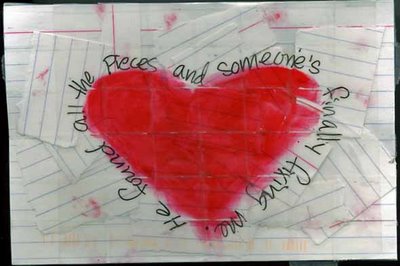 He found all the Pieces and someone's finally fixing me.